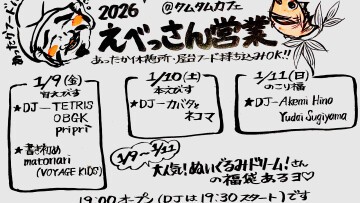 2026
@タムタムカフェ
えべっさん営業
あったか休憩所・屋台フード持ち込みOK!!
1/9(金)
宵えびす
★DJ—TETRIS
OBGK
pripri
★書き初め
matonari
(VOYAGE KIDS)
1/10(土)
本えびす
★DJ—カバタと
ネコマ
1/11(日)
のこり福
★DJ—Akemi Hino
Yudai Sugiyama
1/9〜1/11
大人気!ぬいぐるみドリーム!さん
の福袋あるヨ♡
19:00オープン(DJは19:30スタート)です